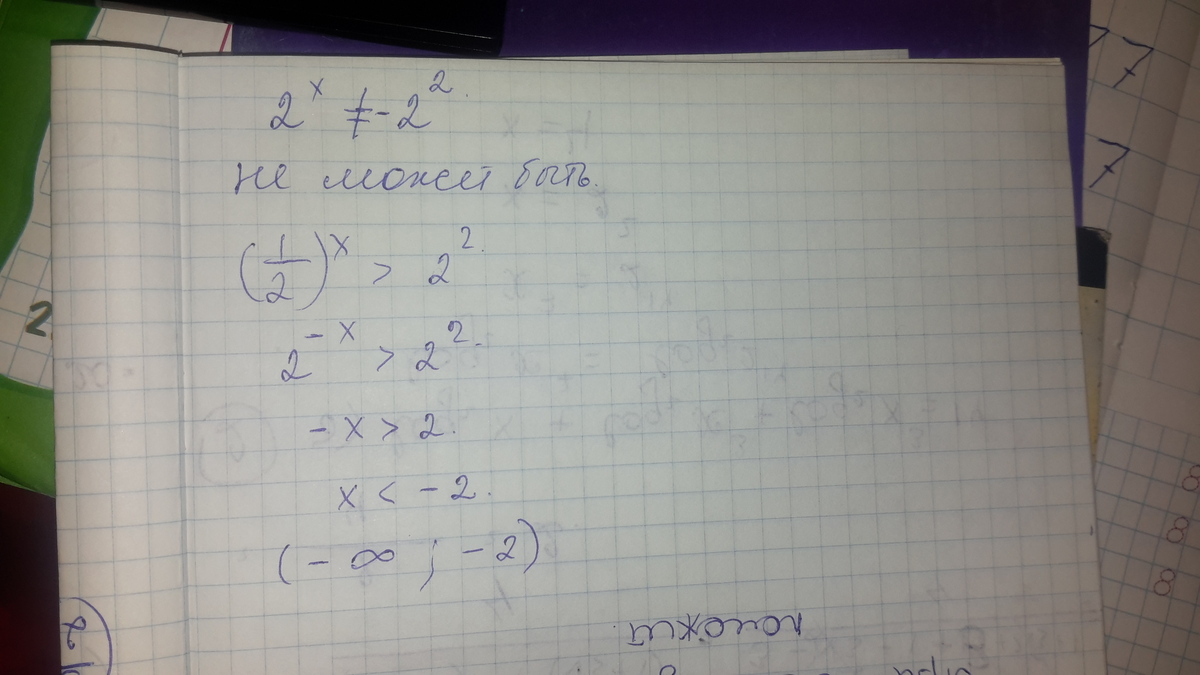 2^x ≠ -2^2.
не может быть.
(1/2)^x > 2^2.
2^-x > 2^2.
-x > 2.
x < -2.
(-∞ ; -2)
7
7
2
8
8
8